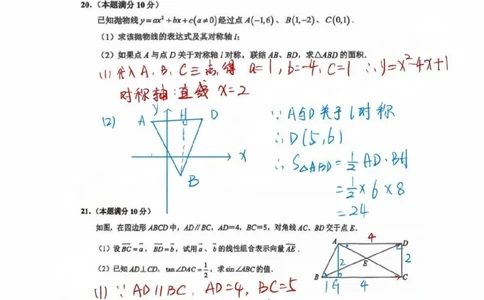 20.（本题满分 10 分）
已知抛物线 y=ax²+bx+c(a≠0)经过点 A(-1,6)、B(1,-2)、C(0,1).
（1）求该抛物线的表达式及其对称轴 l；
（2）如果点 A 与点 D 关于对称轴 l 对称，联结 AB、BD，求△ABD 的面积.
(1) 代入 A、B、C 三点, 得 a=1, b=-4, c=1 ∴y=x²-4x+1
对称轴: 直线 x=2
(2) A y H D
x
B
∵A与D关于l对称
∴D(5,6)
∴S△ABD=1/2 AD·BH
=1/2×6×8
=24
21.（本题满分 10 分）
如图，在四边形 ABCD 中，AD∥BC，AD=4，BC=5，对角线 AC、BD 交于点 E.
（1）设 BC=a，BD=b，试用 a、b 的线性组合表示向量 AE.
（2）已知 AD⊥CD，tan∠DAC=1/2，求 sin∠ABC 的值.
A 4 D
2 E 2
B 1 G 4 C
(1) ∵AD∥BC, AD=4, BC=5